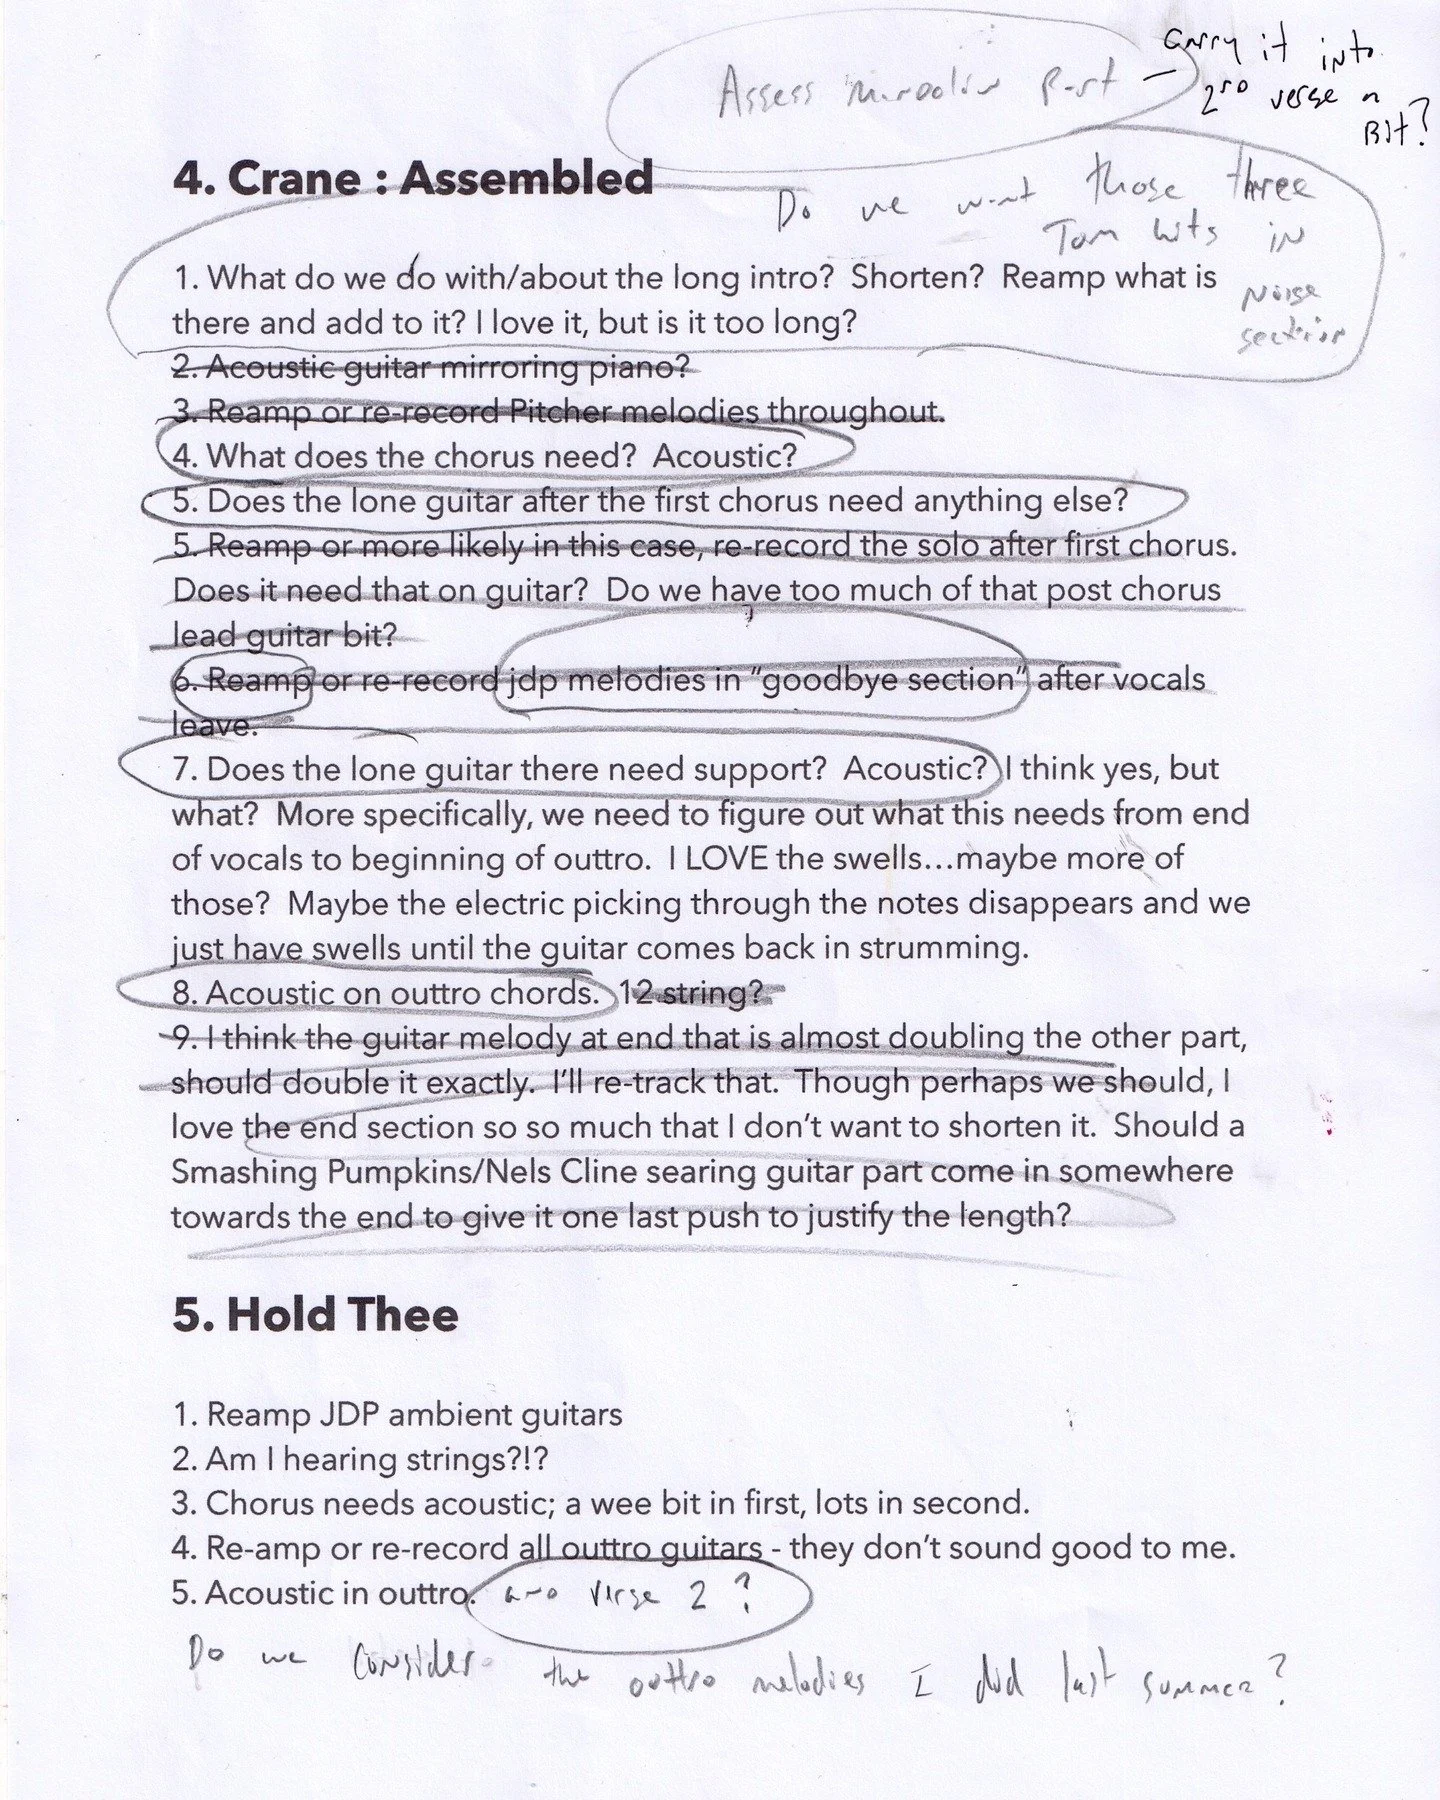 Assess mandolin part - carry it into
2nd verse a
Bit?
4. Crane : Assembled
Do we want those three
Tom hits in
Noise
section
1. What do we do with/about the long intro?  Shorten?  Reamp what is
there and add to it? I love it, but is it too long?
2. Acoustic guitar mirroring piano?
3. Reamp or re-record Pitcher melodies throughout.
4. What does the chorus need?  Acoustic?
5. Does the lone guitar after the first chorus need anything else?
5. Reamp or more likely in this case, re-record the solo after first chorus.
Does it need that on guitar?  Do we have too much of that post chorus
lead guitar bit?
6. Reamp or re-record jdp melodies in "goodbye section" after vocals
leave.
7. Does the lone guitar there need support?  Acoustic? I think yes, but
what?  More specifically, we need to figure out what this needs from end
of vocals to beginning of outtro.  I LOVE the swells...maybe more of
those?  Maybe the electric picking through the notes disappears and we
just have swells until the guitar comes back in strumming.
8. Acoustic on outtro chords.  12 string?
9. I think the guitar melody at end that is almost doubling the other part,
should double it exactly.  I'll re-track that.  Though perhaps we should, I
love the end section so so much that I don't want to shorten it.  Should a
Smashing Pumpkins/Nels Cline searing guitar part come in somewhere
towards the end to give it one last push to justify the length?
5. Hold Thee
1. Reamp JDP ambient guitars
2. Am I hearing strings?!?
3. Chorus needs acoustic; a wee bit in first, lots in second.
4. Re-amp or re-record all outtro guitars - they don't sound good to me.
5. Acoustic in outtro. and verse 2 ?
Do we consider the outtro melodies I did last summer?